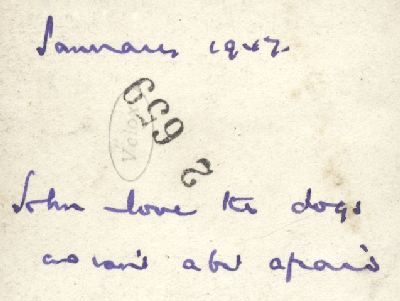 January 1947.
659 2
Velox
John love the dogs
wasn't a bit afraid